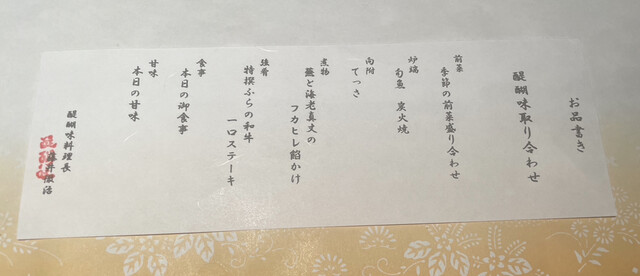 お品書き
醍醐味取り合わせ
前菜
季節の前菜盛り合わせ
炉端
旬魚 炭火焼
向附
てっさ
煮物
蕪と海老真丈の
フカヒレ餡かけ
強肴
特撰ふらの和牛
一口ステーキ
食事
本日の御食事
甘味
本日の甘味
醍醐味料理長